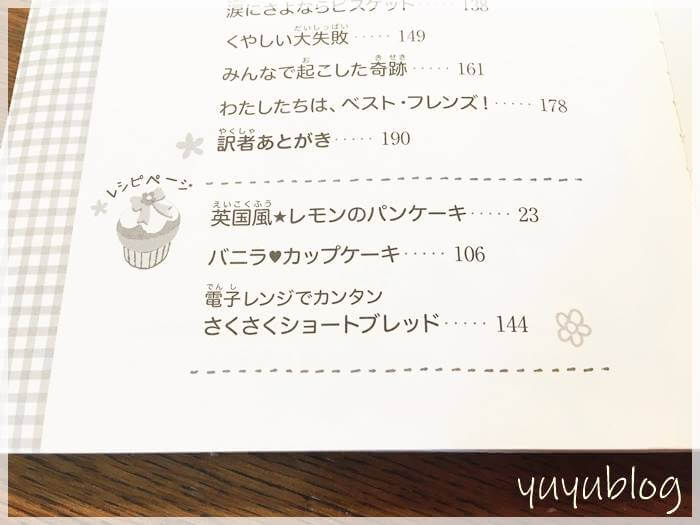 涙にさよならビスケット····· 138
くやしい大失敗····· 149
だいしっぱい
みんなで起こした奇跡····· 161
お きせき
わたしたちは、ベスト・フレンズ!····· 178
訳者あとがき····· 190
やくしゃ
レシピページ
英国風★レモンのパンケーキ····· 23
えいこくふう
バニラ♥カップケーキ····· 106
電子レンジでカンタン
でんし
さくさくショートブレッド····· 144
yuyublog